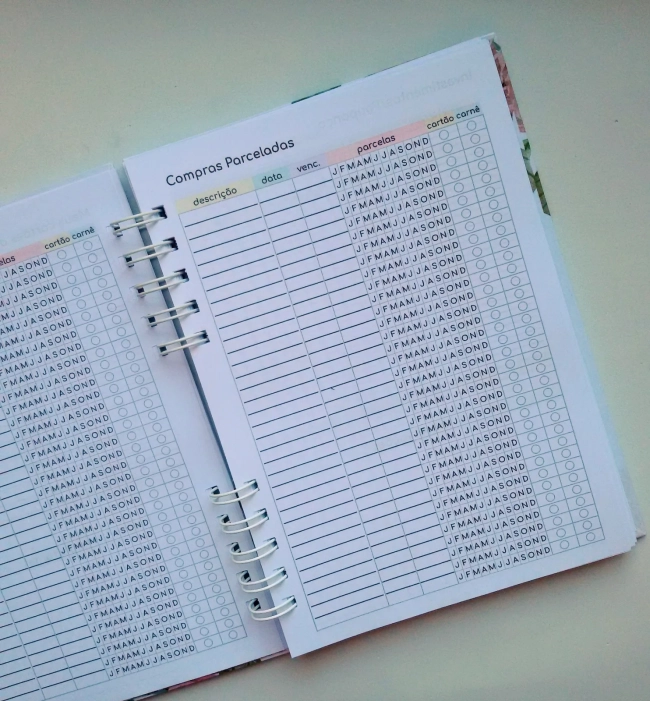 elas cartão carnê
J J A S O N D
J J A S O N D
M J J A S O N D
M J J A S O N D
A M J J A S O N D
A M J J A S O N D
M A M J J A S O N D
M A M J J A S O N D
F M A M J J A S O N D
F M A M J J A S O N D
J F M A M J J A S O N D
J F M A M J J A S O N D
J F M A M J J A S O N D
J F M A M J J A S O N D
J F M A M J J A S O N D
J F M A M J J A S O N D
J F M A M J J A S O N D
J F M A M J J A S O N D
J F M A M J J A S O N D
J F M A M J J A S O N D
J F M A M J J A S O N D
J F M A M J J A S O N D
J F M A M J J A S O N D
J F M A M J J A S O N D
J F M A M J J A S O N D
J F M A M J J A S O N D
J F M A M J J A S O N D
J F M A M J J A S O N D
J F M A M J J A S O N D
J F M A M J J A S O N D
J F M A M J J A S O N D
Compras Parceladas
descrição data venc. parcelas cartão carnê
J F M A M J J A S O N D
J F M A M J J A S O N D
J F M A M J J A S O N D
J F M A M J J A S O N D
J F M A M J J A S O N D
J F M A M J J A S O N D
J F M A M J J A S O N D
J F M A M J J A S O N D
J F M A M J J A S O N D
J F M A M J J A S O N D
J F M A M J J A S O N D
J F M A M J J A S O N D
J F M A M J J A S O N D
J F M A M J J A S O N D
J F M A M J J A S O N D
J F M A M J J A S O N D
J F M A M J J A S O N D
J F M A M J J A S O N D
J F M A M J J A S O N D
J F M A M J J A S O N D
J F M A M J J A S O N D
J F M A M J J A S O N D
J F M A M J J A S O N D
J F M A M J J A S O N D
J F M A M J J A S O N D
J F M A M J J A S O N D
J F M A M J J A S O N D
J F M A M J J A S O N D
J F M A M J J A S O N D
J F M A M J J A S O N D
J F M A M J J A S O N D
J F M A M J J A S O N D